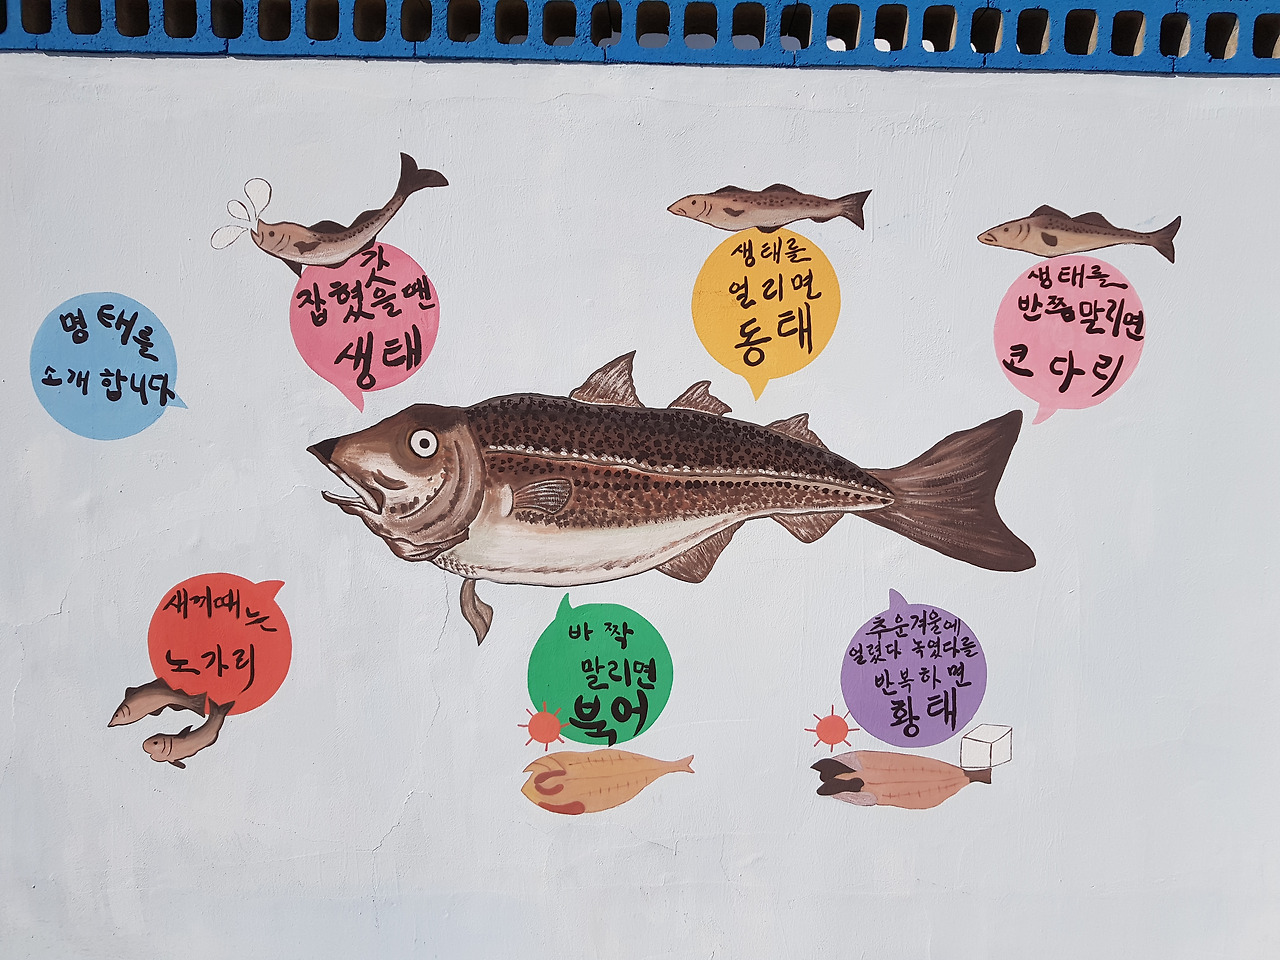 명태를
소개합니다
갓
잡혔을땐
생태
생태를
얼리면
동태
생태를
반쯤말리면
코다리
새끼때는
노가리
바짝
말리면
북어
추운겨울에
얼렸다 녹였다를
반복하면
황태